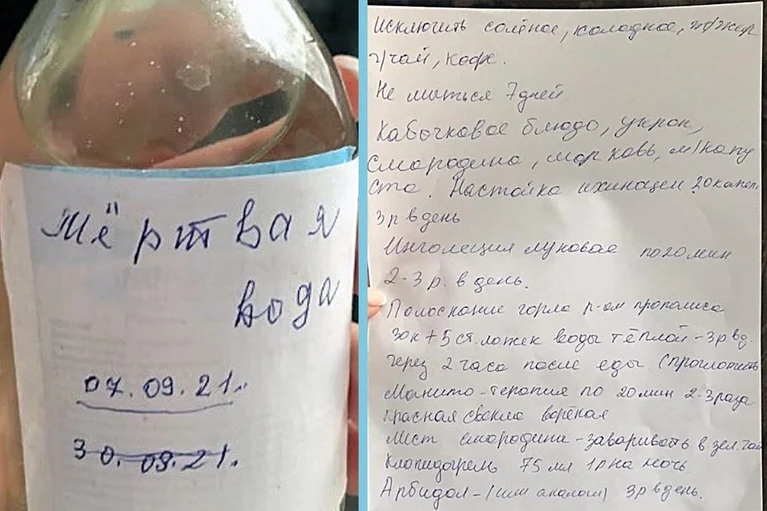 Мёртвая
вода
07.09.21.
30.09.21.
Исключить солёное, холодное, т/жир
ч/чай, кофе.
Не мыться 7 дней.
Кабочковое блюдо, укроп,
смородина, морковь, м/капу
ста. Настойка ихинацеи 20 капел
3 р в день
Инголяция луковая по 20 мин
2-3 р. в день.
Полоскание горла р-ом прополиса
30к + 5 ст. ложек воды тёплой - 3 р в д.
через 2 часа после еды (проглотить
Магнито-терапия по 20 мин 2-3 раза
красная свекла вареная
Лист смородины - заваривать в зел. чай
Клопидогрель 75 мл 1 р на ночь.
Арбидол - (или аналог) 3 р в день.